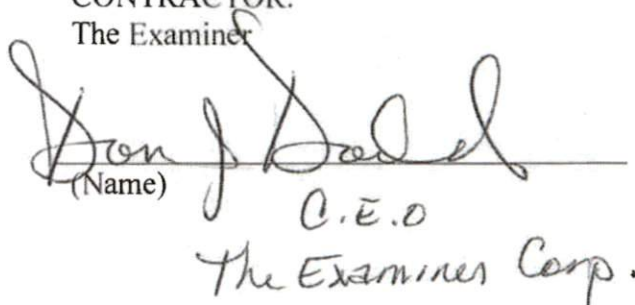 CONTRACTOR:
The Examiner
Don J Dodd
(Name)
C.E.O
The Examiner Corp.